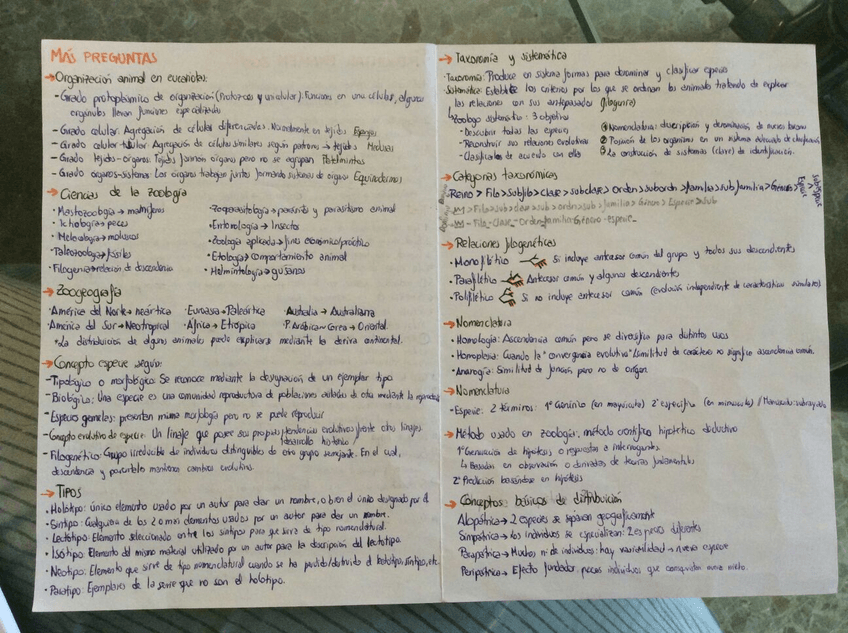 MÁS PREGUNTAS
→Organización animal en eucariotas:
-Grado protoplásmico de organización (Protozoos y unicelular). Funciones en una célula, algunos
orgánulos llevan funciones especializadas
-Grado celular: Agregación de células diferenciadas. Normalmente en tejidos Esponjas
-Grado celular-tisular: Agregación de células similares según patrones → tejidos Medusas
-Grado tejidos-órganos: Tejidos forman órganos pero no se agrupan Platelmintos
-Grado órganos-sistemas: Los órganos trabajan juntos formando sistemas de órganos Equinodermos
→Ciencias de la zoología
·Mastozoología → mamíferos
·Ictiología → peces
·Malacología → moluscos
·Paleozoología → fósiles
·Filogenia → relación de descendencia
·Zooparasitología → parásitos y parasitismo animal
·Entomología → Insectos
·Zoología aplicada → fines económico/práctico
·Etología → comportamiento animal
·Helmintología → gusanos
→Zoogeografía
·América del Norte → neártica ·Eurasia → Paleártica ·Australia → Australiana
·América del Sur → Neotropical ·África → Etiópica ·P. Arábica-Corea → Oriental
*La distribución de algunos animales puede explicarse mediante la deriva continental.
→Concepto especie según:
-Tipológico o morfológico: Se reconoce mediante la designación de un ejemplar tipo
-Biológico: Una especie es una comunidad reproductora de poblaciones aisladas de otra mediante la reproducción
-Especies gemelas: presentan misma morfología pero no se puede reproducir
-Concepto evolutivo de especie: Un linaje que posee sus propias tendencias evolutivas frente otro linajes.
desarrollo histórico
-Filogenético: Grupo irreducible de individuos distinguibles de otro grupo semejante. En el cual,
descendencia y parentela mantienen cambios evolutivos.
→TIPOS
·Holotipo: único elemento usado por un autor para dar un nombre, o bien el único designado por él
·Sintipo: Cualquiera de los 2 o más elementos usados por un autor para dar un nombre.
·Lectotipo: Elemento seleccionado entre los sintipos para que sirva de tipo nomenclatural.
·Isótipo: Elemento del mismo material utilizado por un autor para la descripción del lectotipo.
·Neotipo: Elemento que sirve de tipo nomenclatural cuando se ha perdido/destruido el holotipo, sintipo, etc.
·Paratipo: Ejemplares de la serie que no son el holotipo.
→Taxonomía y sistemática
·Taxonomía: Produce un sistema formas para denominar y clasificar especies
·Sistemática: Establece los criterios por los que se ordenan los animales tratando de explicar
las relaciones con sus antepasados (filogenia)
↳Zoólogo sistemático: 3 objetivos
-Descubrir todas las especies
-Reconstruir sus relaciones evolutivas
-Clasificarlas de acuerdo con ella
① Nomenclatura: descripción y denominación de nuevos taxones
② Posición de los organismos en un sistema adecuado de clasificación
③ La construcción de sistemas (clave) de identificación.
→Categorías taxonómicas
Reino > Filo > subfilo > clase > subclase > Orden > suborden > familia > subfamilia > Género > Especie > subespecie
→Relaciones filogenéticas
·Monofilético Si incluye antecesor común del grupo y todos sus descendientes
·Parafilético Antecesor común y algunos descendientes
·Polifilético Si no incluye antecesor común (evolución independiente de características similares)
→Nomenclatura
·Homología: Ascendencia común pero se diversifica para distintos usos
·Homoplasia: Cuando la "convergencia evolutiva" (similitud de carácter no significa ascendencia común.
·Analogía: Similitud de función pero no de origen.
→Nomenclatura
-Especie: 2 términos: 1º Genérico (en mayúscula) 2º específico (en minúscula) / Manuscrito: subrayado
→Método usado en zoología: método científico hipotético deductivo
1º Generación de hipótesis o respuestas a interrogantes
↳ Basadas en observación o derivadas de teorías fundamentales
2º Predicción basándose en hipótesis
→Conceptos básicos de distribución
Alopátrica → 2 especies se separan geográficamente
Simpátrica → los individuos se especializan: 2 especies diferentes
Parapátrica → Muchos nº de individuos: hay variabilidad → nueva especie
Peripátrica → Efecto fundador: pocos individuos que conquistan nuevo nicho.